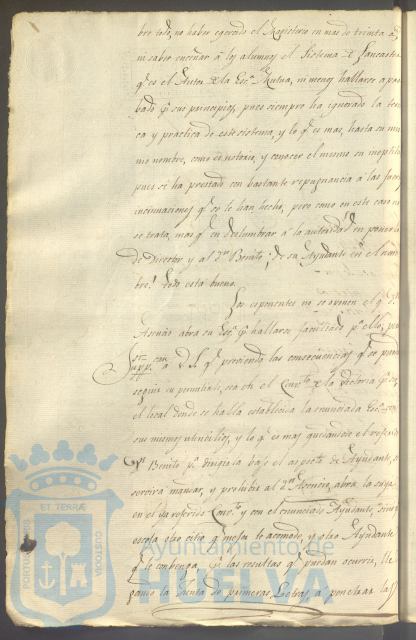 bre todo, no haber egercido el Magisterio en mas de treinta a
ni saber enseñar á los alumnos el Sistema de Lancaster
qe. es el Autor de la Esca. Mutua, ni menos hallarse apro
bado pr. sus principios, pues siempre ha ignorado la teori
ca y práctica de este sistema, y lo qe. es mas, hasta su mis
mo nombre, como es notorio, y conocer el mismo su ineptitud
pues se ha prestado con bastante repugnancia á las
incinuaciones qe. se le han hecho, pero como en este caso no
se trata, mas qe. en deslumbrar á la autoridad en ponerlo
de Director y al Dn. Benito, de su Ayudante en el nom
bre, todo está bueno.
Los esponentes no se oponen el qe. Dn.
Asencio abra su Esca. pr. hallarse facultado pr. ello, pero
Supp.
á V.S. qe. preciendo las consecuencias qe. se pueden
seguir en permitirle, sea en el Convto. de la Victoria pr. ser
el local donde se halla establecida la enunciada Esca.
sus mismos utencilios, y lo qe. es mas quedandose el referido
Dn. Benito pa. dirigirla bajo el aspecto de Ayudante, se
servira mandar, y prohibir al Dn. Asencio, abra la suya
en el ya referido Convto. y con el enunciado Ayudante, sino qe.
escoja otro citio qe. mejor le acomode, y otro Ayudante
qe. le combenga,
las resultas qe. puedan ocurrir,
la Junta de primeras Letras á ponerlas
PORTUS MARIS
ET TERRÆ
CUSTODIA
Ayuntamiento de
HUELVA